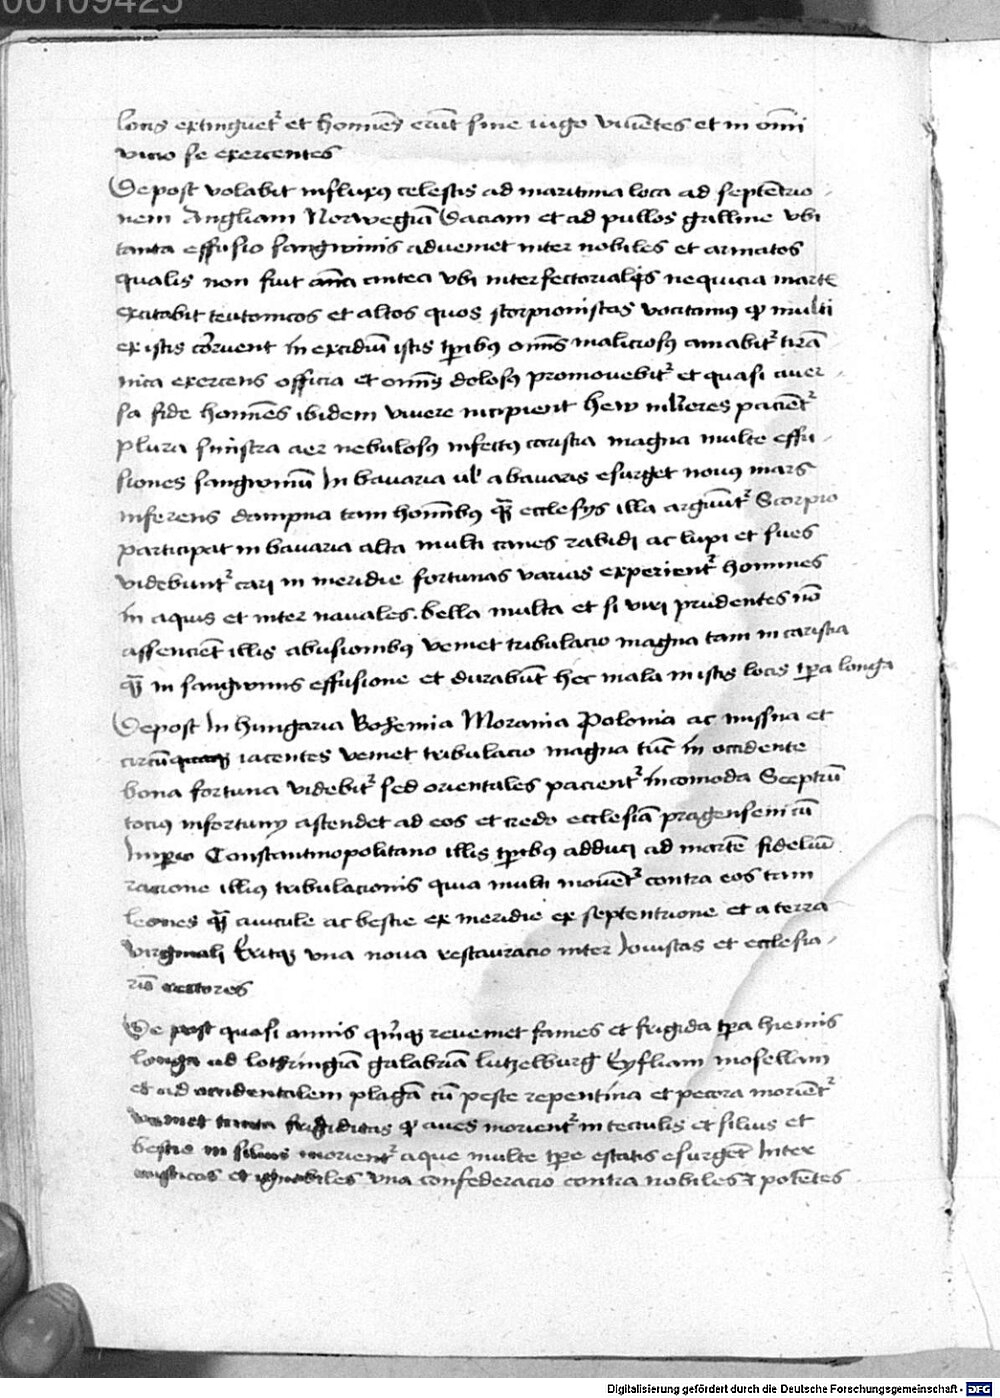 00109425
locis extinguet᷑ et homīes erūt sine iugo viuētes et in om̄i
vicio se exercentes
Depost volabit influxꝰ celestis ad maritima loca ad septētrio
nem Angliam Norwegiā Daciam et ad pullos galline vbi
tanta effusio sangwinis adueniet inter nobiles et armatos
qualis non fuit antea vbi interfectorialis nequicia marte
excitabit teutonicos et altos quos scorpionistas vocitamꝰ ꝙ multi
ex istis corruent in excidiū istis tp̄ribꝰ om̄s maliciosꝰ amabit᷑ tirā
nica exercens officia et om̄s dolosꝰ promouebit᷑ et quasi auer
sa fide homīes ibidem viuere incipient hew mulieres pacient᷑
plura sinistra aer nebulosꝰ infectꝰ caristia magna multe effu
siones sangwinū In bauaria vl' a bauaris esurget nouꝰ mars
inferens dampna tam hominibꝰ qm̄ ecclesijs illa arguunt᷑ Scorpio
participat in bauaria alta multi canes rabidi ac lupi et sues
videbunt᷑ cari in meridie fortunas varias experient᷑ homines
in aquis et inter nauales bella multa et si viri prudentes nō
assencient illis abusionibꝰ veniet tribulacio magna tam in caristia
qm̄ in sangwinis effusione et durabūt hec mala in istis locis tp̄ra longa
Depost In hungaria Bohemia Morauia Polonia ac missna et
circūquaqꝫ iacentes veniet tribulacio magna tūc in occidente
bona fortuna videbit᷑ sed orientales pacient᷑ incomoda Sceptrū
tociꝰ infortunij ascendet ad eos et credo ecclesiā pragensem cū
Imp̄io Constantinopolitano illis tp̄ribꝰ adduci ad mortē fideliū
racione illiꝰ tribulacionis quia multi mouēt᷑ contra eos tam
leones qm̄ auicule ac bestie ex meridie ex septentrione et a terra
virginali Eritqꝫ vna noua restauracio inter Iouistas et ecclesia
rū rectores
De post quasi annis quīqꝫ reueniet fames et frigida tp̄ra hiemis
longa ad lothringiā galabriā lutzelburg Eyfliam mosellam
et ad occidentalem plagā cū peste repentina et pecora morient᷑
veniet tanta frigiditas ꝙ aues morient᷑ in tectulis et siluis et
bestie in siluis morient᷑ aque multe tp̄re estatis esurgēt Inter
rusticos et ignobiles vna confederacio contra nobiles et potētes
Digitalisierung gefördert durch die Deutsche Forschungsgemeinschaft - DFG